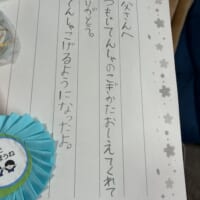 父さんへ
つもじてんしゃのこぎかたおしえてくれて
りがとう。
てんしゃこげるようになったよ。